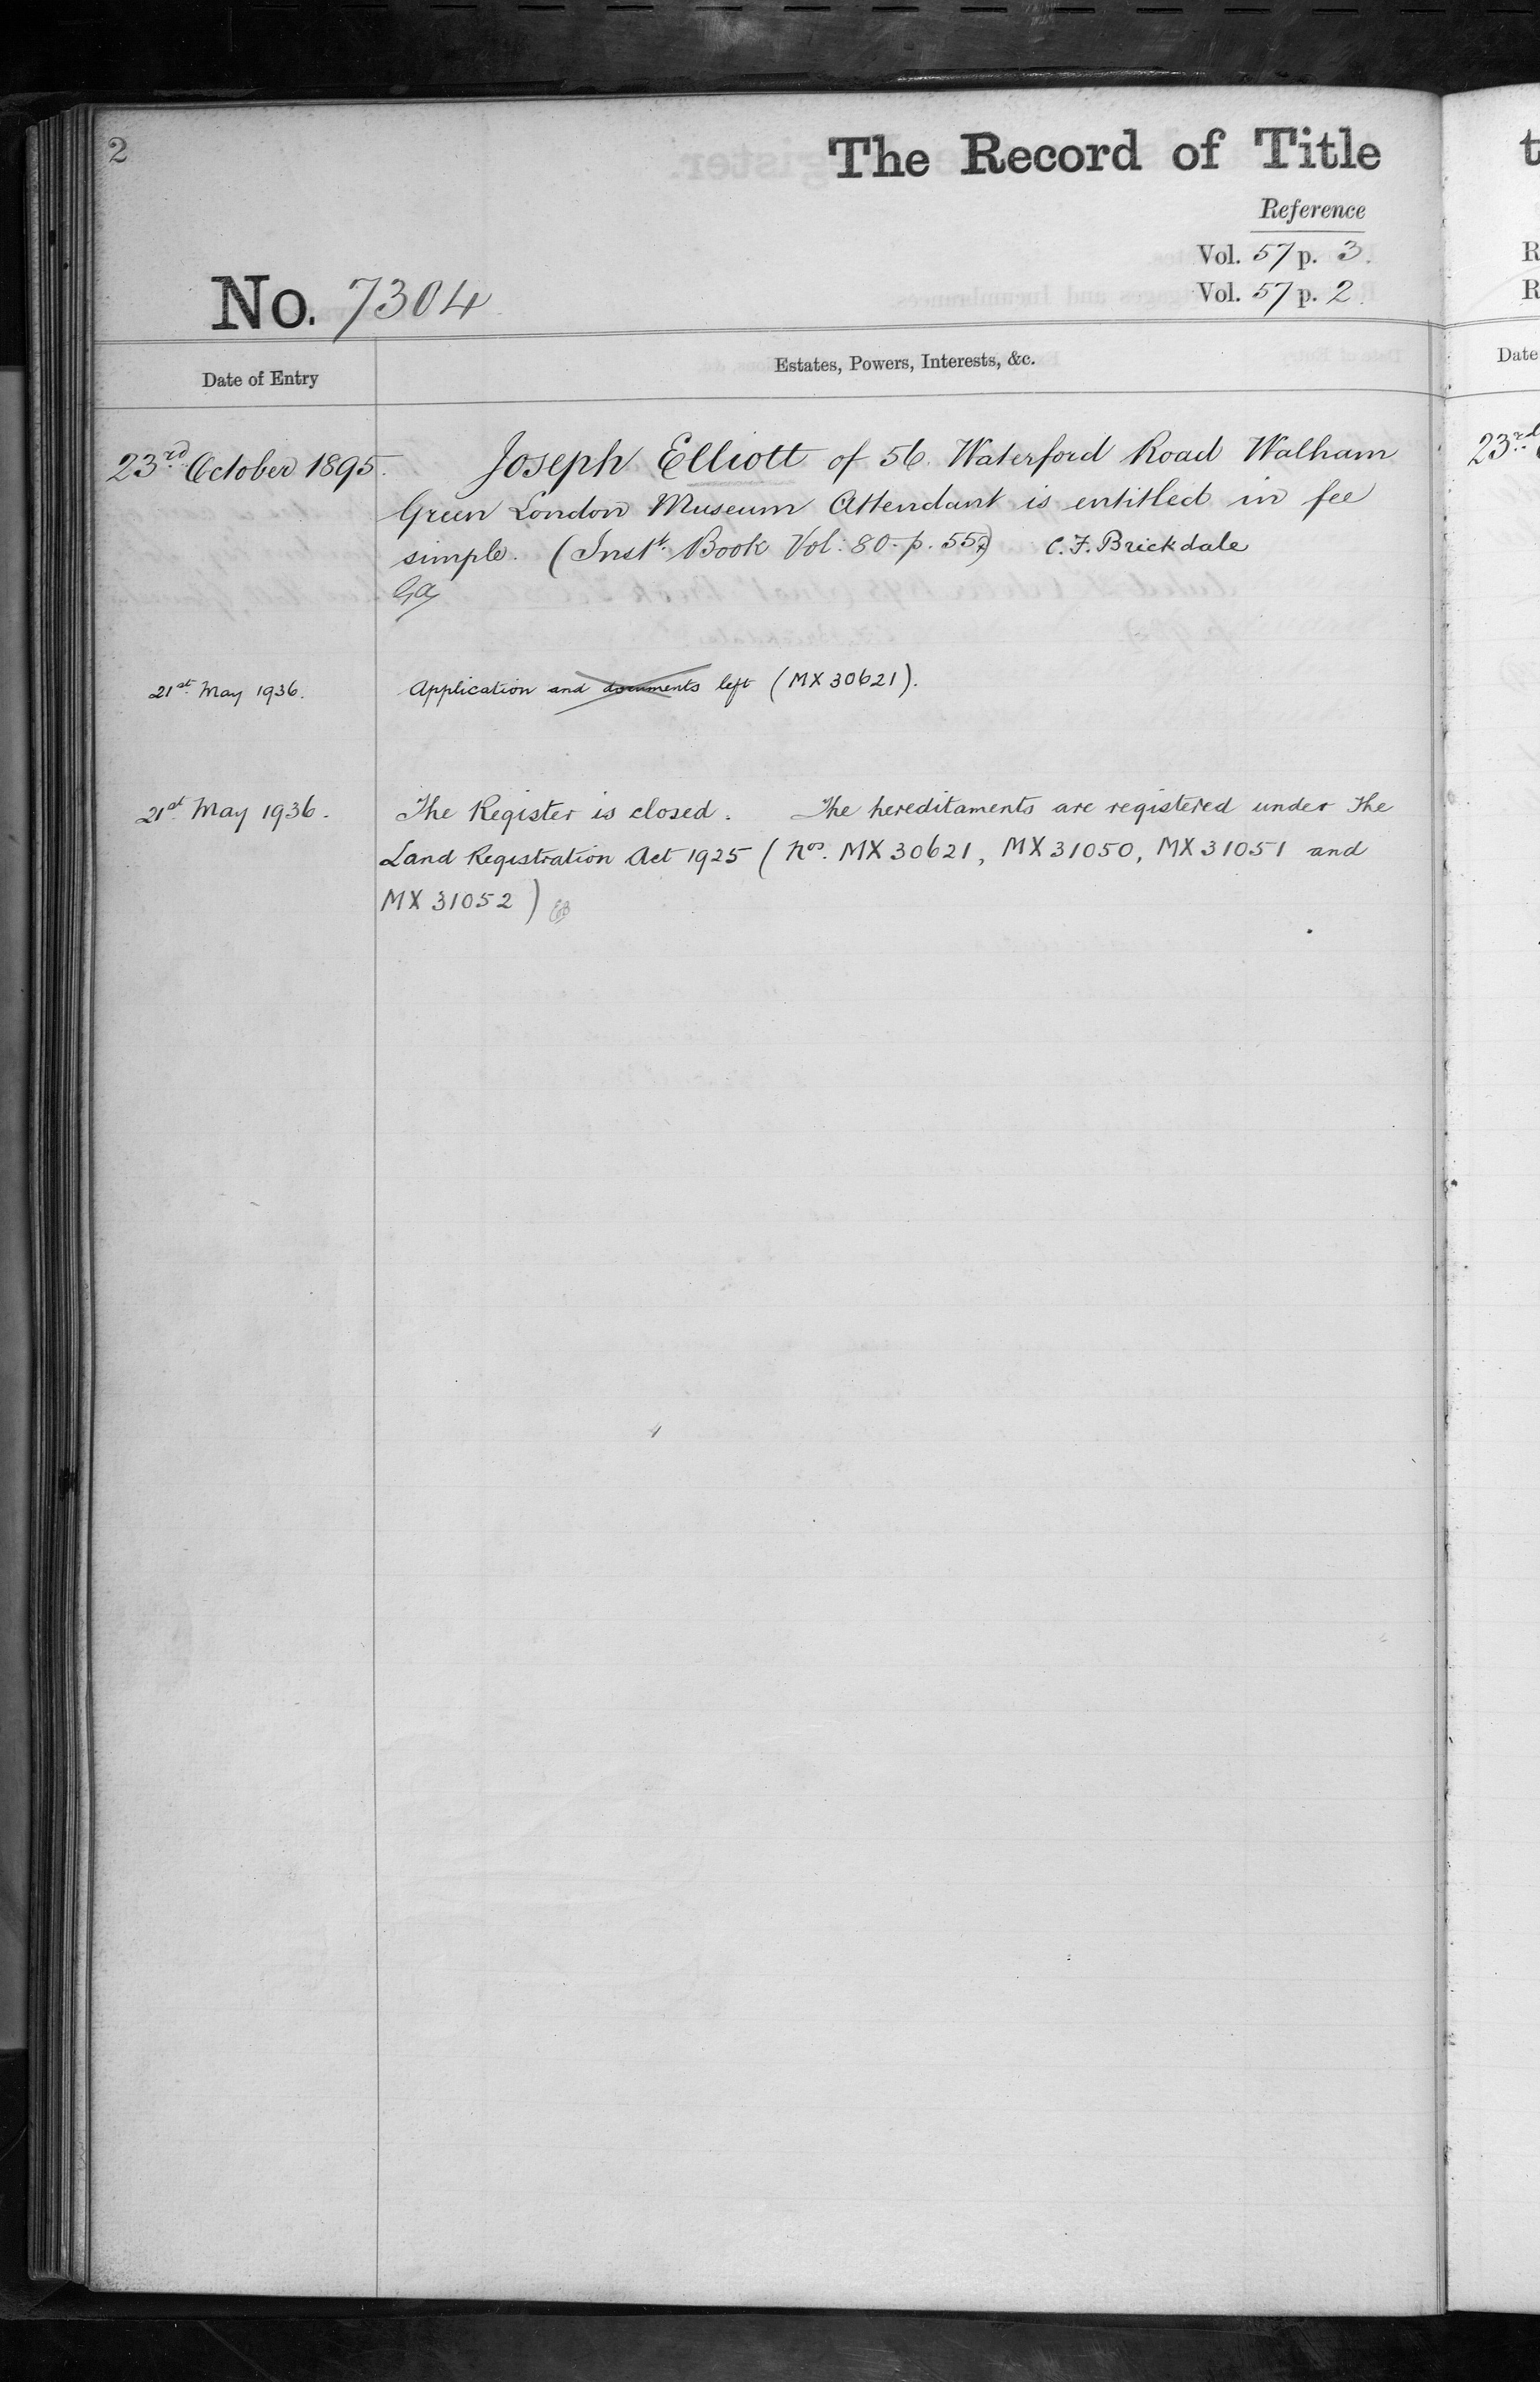 2
The Record of Title
Reference
Vol. 57 p. 3.
No. 7304
Vol. 57 p. 2.
Date of Entry
Estates, Powers, Interests, &c.
23rd October 1895.
Joseph Elliott of 56 Waterford Road Walham
Green London Museum Attendant is entitled in fee
simple. (Inst. Book Vol: 80. p. 55) C. F. Brickdale
21st May 1936.
Application and documents left (MX 30621).
21st May 1936.
The Register is closed. The hereditaments are registered under the
Land Registration Act 1925 (Nos. MX 30621, MX 31050, MX 31051 and
MX 31052)
t
R
R
Date
23rd